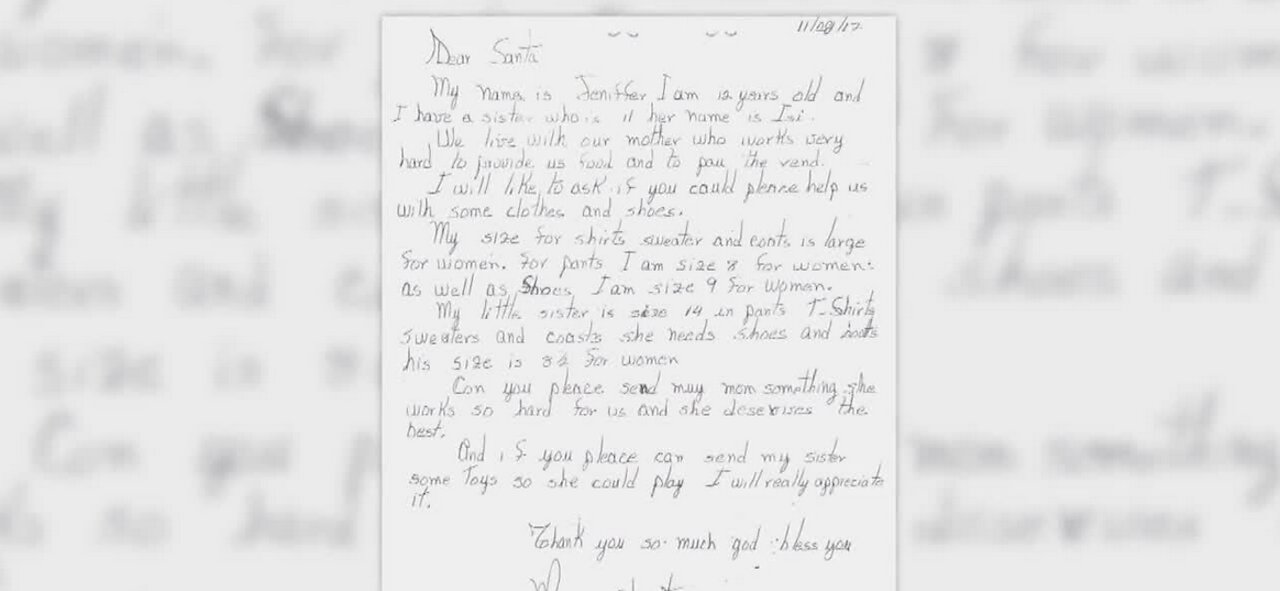 11/08/17
Dear Santa
My name is Jeniffer I am 12 years old and
I have a sister who is 11 her name is Isi.
We live with our mother who works very
hard to provide us food and to pau the rend.
I will like to ask if you could pleace help us
with some clothes and shoes.
My size for shirts sweater and coats is large
for women. For pants I am size 8 for women.
as well as Shoes I am size 9 for women.
My little sister is size 14 in pants T-Shirts
Sweaters and coasts she needs shoes and boots
his size is 8½ for women
Can you pleace send muy mom something, she
works so hard for us and she deserves the
best.
And if you pleace can send my sister
some Toys so she could play I will really appreciate
it.
Thank you so much god bless you